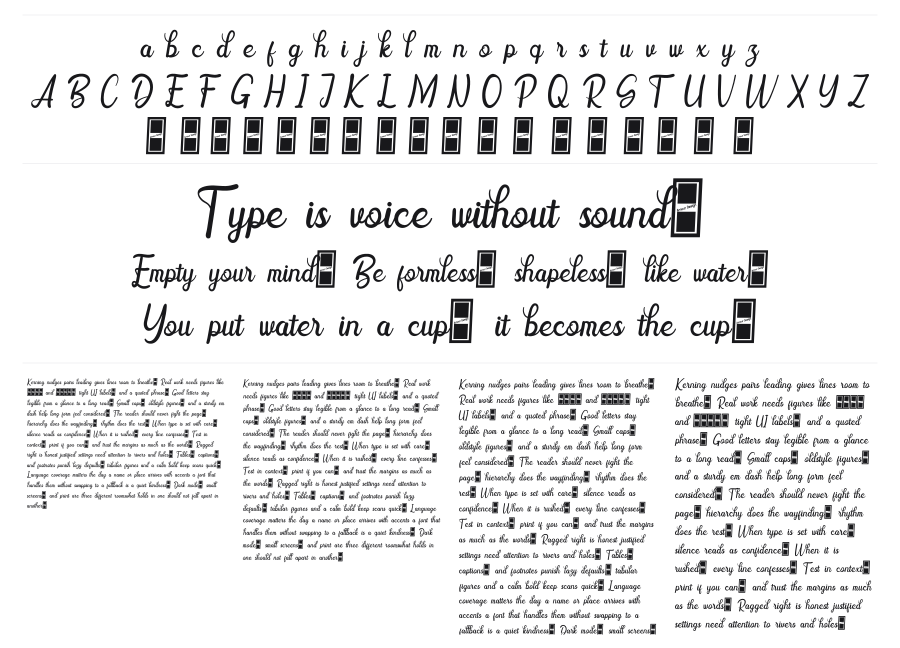 a b c d e f g h i j k l m n o p q r s t u v w x y z
A B C D E F G H I J K L M N O P Q R S T U V W X Y Z
Type is voice without sound
Empty your mind Be formless shapeless like water
You put water in a cup it becomes the cup
Kerning nudges pairs leading gives lines room to breathe Real work needs figures like
and tight UI labels and a quoted phrase Good letters stay
legible from a glance to a long read Small caps oldstyle figures and a sturdy em
dash help long form feel considered The reader should never fight the page
hierarchy does the wayfinding rhythm does the rest When type is set with care
silence reads as confidence When it is rushed every line confesses Test in
context print if you can and trust the margins as much as the words Ragged
right is honest justified settings need attention to rivers and holes Tables captions
and footnotes punish lazy defaults tabular figures and a calm bold keep scans quick
Language coverage matters the day a name or place arrives with accents a font that
handles them without swapping to a fallback is a quiet kindness Dark mode small
screens and print are three different rooms what holds in one should not fall apart in
another
Kerning nudges pairs leading gives lines room to breathe Real work
needs figures like and tight UI labels and a quoted
phrase Good letters stay legible from a glance to a long read Small
caps oldstyle figures and a sturdy em dash help long form feel
considered The reader should never fight the page hierarchy does
the wayfinding rhythm does the rest When type is set with care
silence reads as confidence When it is rushed every line confesses
Test in context print if you can and trust the margins as much as
the words Ragged right is honest justified settings need attention to
rivers and holes Tables captions and footnotes punish lazy
defaults tabular figures and a calm bold keep scans quick Language
coverage matters the day a name or place arrives with accents a font that
handles them without swapping to a fallback is a quiet kindness Dark
mode small screens and print are three different rooms what holds in
one should not fall apart in another
Kerning nudges pairs leading gives lines room to breathe
Real work needs figures like and tight
UI labels and a quoted phrase Good letters stay
legible from a glance to a long read Small caps
oldstyle figures and a sturdy em dash help long form
feel considered The reader should never fight the
page hierarchy does the wayfinding rhythm does the
rest When type is set with care silence reads as
confidence When it is rushed every line confesses
Test in context print if you can and trust the margins
as much as the words Ragged right is honest justified
settings need attention to rivers and holes Tables
captions and footnotes punish lazy defaults tabular
figures and a calm bold keep scans quick Language
coverage matters the day a name or place arrives with
accents a font that handles them without swapping to a
fallback is a quiet kindness Dark mode small screens
Kerning nudges pairs leading gives lines room to
breathe Real work needs figures like
and tight UI labels and a quoted
phrase Good letters stay legible from a glance
to a long read Small caps oldstyle figures
and a sturdy em dash help long form feel
considered The reader should never fight the
page hierarchy does the wayfinding rhythm
does the rest When type is set with care
silence reads as confidence When it is
rushed every line confesses Test in context
print if you can and trust the margins as much
as the words Ragged right is honest justified
settings need attention to rivers and holes